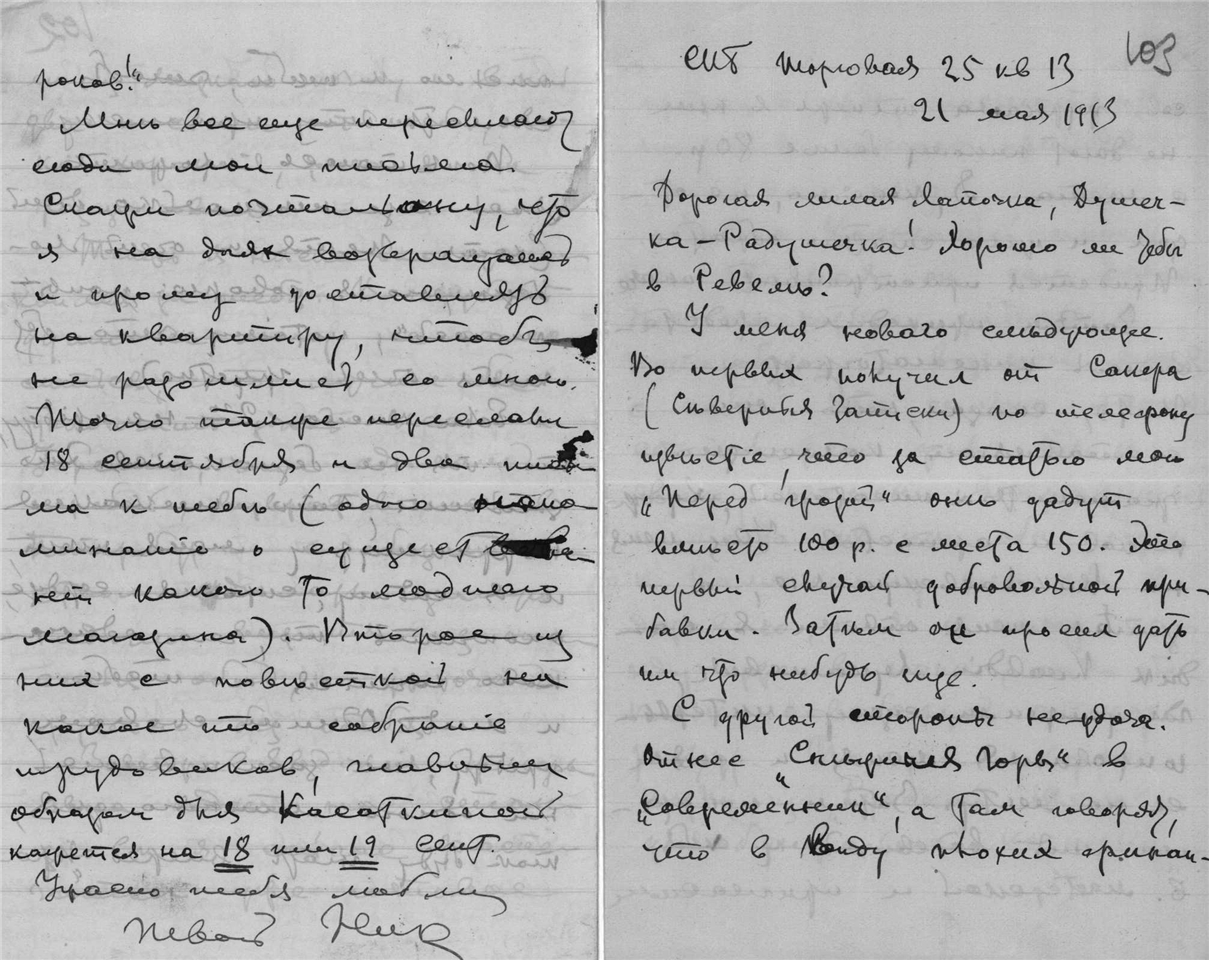 роков!"
Мнѣ все еще пересылают
сюда мои письма.
Скажи почтальону, что
я на днях возвращаюсь
и прошу доставлять
на квартиру, чтобы
не разошлись со мною.
Точно также переслали
18 сентября и два пись
ма к тебѣ (одно напо
минанiе о существова
нiи какого то модного
магазина). Второе из
них с повѣсткой на
какое то собранiе
трудовиков, главным
образом для Касаткиной
кажется на 18 или 19 сент.
Ужасно тебя люблю
твой Ник
103
СПБ Торговая 25 кв 13
21 мая 1913
Дорогая милая Лапочка, Душеч-
ка-Радушечка! Хорошо ли тебѣ
в Ревелѣ?
У меня новаго слѣдующее.
Во первых получил от Сакера
(Сѣверныя Записки) по телефону
извѣстiе, что за статью мою
„Перед грозой" они дадут
вмѣсто 100 р. с листа 150. Это
первый случай добровольной при-
бавки. Затѣм он просил дать
им что нибудь еще.
С другой стороны неудача.
Отнес „ Горы" в
„Современник", а там говорят,
что в виду плохих финан-